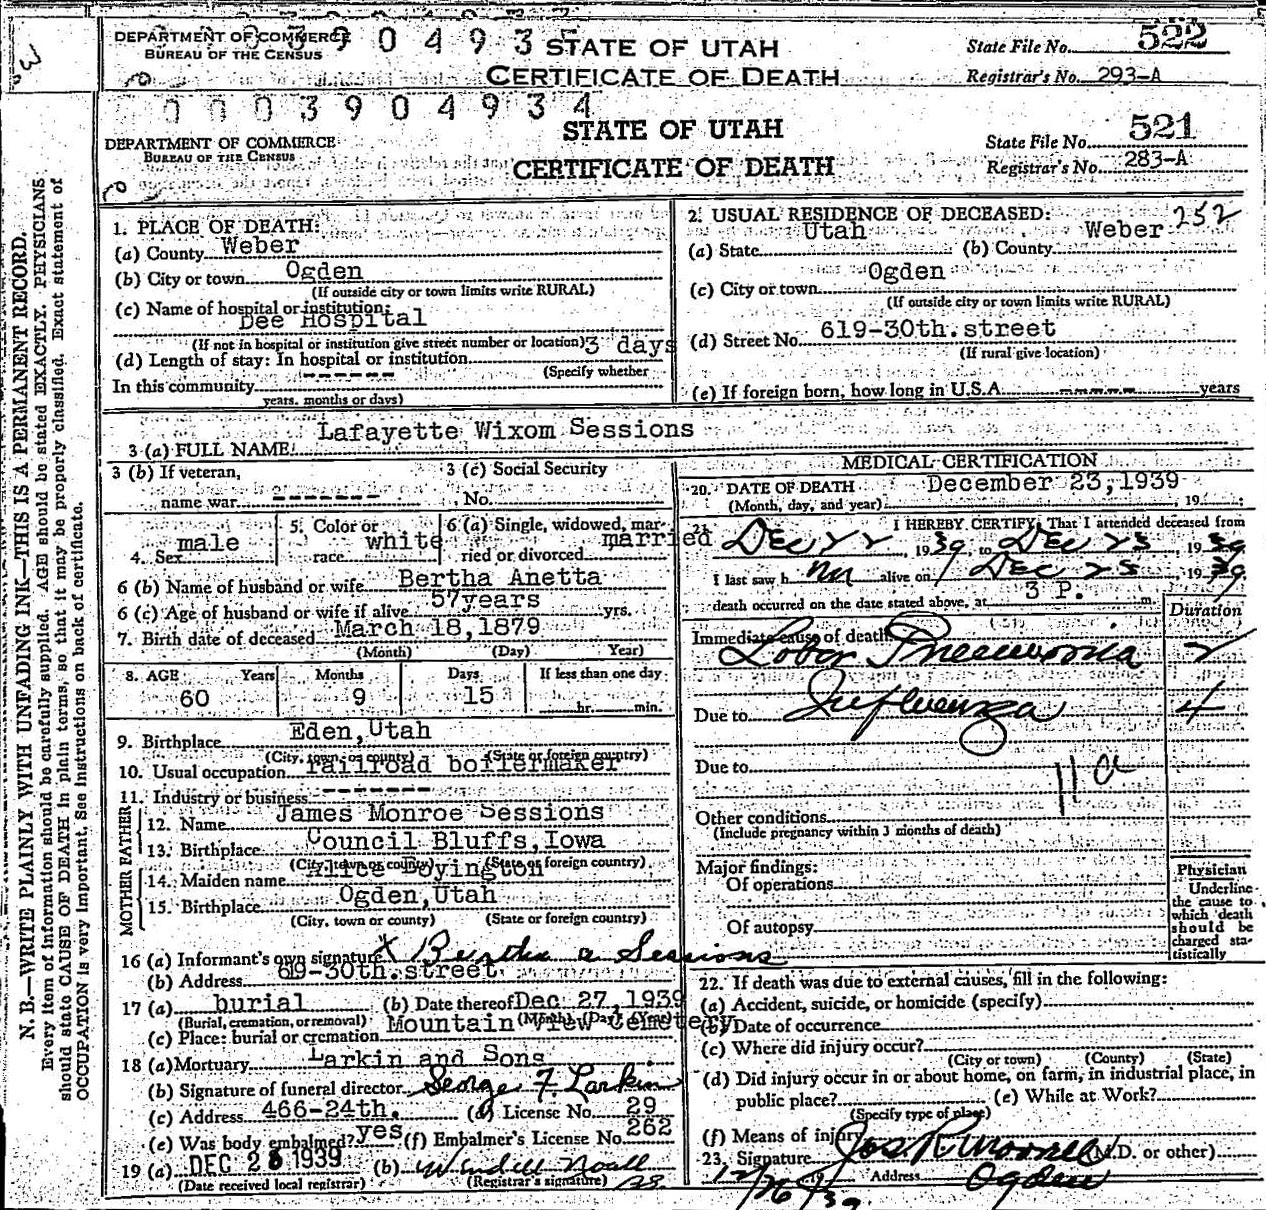 DEPARTMENT OF COMMERCE
BUREAU OF THE CENSUS
STATE OF UTAH
CERTIFICATE OF DEATH
State File No. 522
Registrar's No. 293-A
0003904934
DEPARTMENT OF COMMERCE
BUREAU OF THE CENSUS
STATE OF UTAH
CERTIFICATE OF DEATH
State File No. 521
Registrar's No. 283-A
N. B.—WRITE PLAINLY WITH UNFADING INK—THIS IS A PERMANENT RECORD.
Every item of information should be carefully supplied. AGE should be stated EXACTLY. PHYSICIANS
should state CAUSE OF DEATH in plain terms, so that it may be properly classified. Exact statement of
OCCUPATION is very important. See instructions on back of certificate.
1. PLACE OF DEATH:
(a) County Weber
(b) City or town Ogden
(If outside city or town limits write RURAL)
(c) Name of hospital or institution:
Dee Hospital
(If not in hospital or institution give street number or location)
(d) Length of stay: In hospital or institution 3 days
(Specify whether
In this community ------
years, months or days)
2. USUAL RESIDENCE OF DECEASED: 252
(a) State Utah (b) County Weber
(c) City or town Ogden
(If outside city or town limits write RURAL)
(d) Street No. 619-30th.street
(If rural give location)
(e) If foreign born, how long in U.S.A. ----- years
3 (a) FULL NAME Lafayette Wixom Sessions
3 (b) If veteran,
name war -------
3 (c) Social Security
No.
4. Sex male
5. Color or
race white
6 (a) Single, widowed, mar-
ried or divorced married
6 (b) Name of husband or wife Bertha Anetta
6 (c) Age of husband or wife if alive 57years yrs.
7. Birth date of deceased March 18,1879
(Month) (Day) Year)
8. AGE Years Months Days If less than one day
60 9 15 hr. min.
9. Birthplace Eden,Utah
(City, town or county) (State or foreign country)
10. Usual occupation railroad boilermaker
11. Industry or business -------
FATHER
12. Name James Monroe Sessions
13. Birthplace Council Bluffs,Iowa
(City, town or county) (State or foreign country)
MOTHER
14. Maiden name Alice Boyington
15. Birthplace Ogden,Utah
(City, town or county) (State or foreign country)
16 (a) Informant's own signature x Bertha a Sessions
(b) Address 619-30th.street
17 (a) burial (b) Date thereof Dec 27,1939
(Burial, cremation, or removal) (Month) (Day) (Year)
(c) Place: burial or cremation Mountain View Cemetery
18 (a) Mortuary Larkin and Sons
(b) Signature of funeral director George F. Larkin
(c) Address 466-24th. (d) License No. 29
(e) Was body embalmed? yes (f) Embalmer's License No. 262
19 (a) DEC 26 1939 (b) Wendell Noall
(Date received local registrar) (Registrar's signature)
MEDICAL CERTIFICATION
20. DATE OF DEATH December 23,1939
(Month, day, and year) 19
21. I HEREBY CERTIFY, That I attended deceased from
Dec 22, 1939, to Dec 23, 1939
I last saw him alive on Dec 23 1939
death occurred on the date stated above, at 3 P. m.
Duration
Immediate cause of death
Lobar Pneumonia 2
Due to Influenza 4
Due to 11a
Other conditions
(Include pregnancy within 3 months of death)
Major findings:
Of operations
Of autopsy
Physician
Underline
the cause to
which death
should be
charged sta-
tistically
22. If death was due to external causes, fill in the following:
(a) Accident, suicide, or homicide (specify)
(b) Date of occurrence
(c) Where did injury occur?
(City or town) (County) (State)
(d) Did injury occur in or about home, on farm, in industrial place, in
public place? (e) While at Work?
(Specify type of place)
(f) Means of injury
23. Signature Jos. R. Morrell (M.D. or other)
12/26/39 Address Ogden